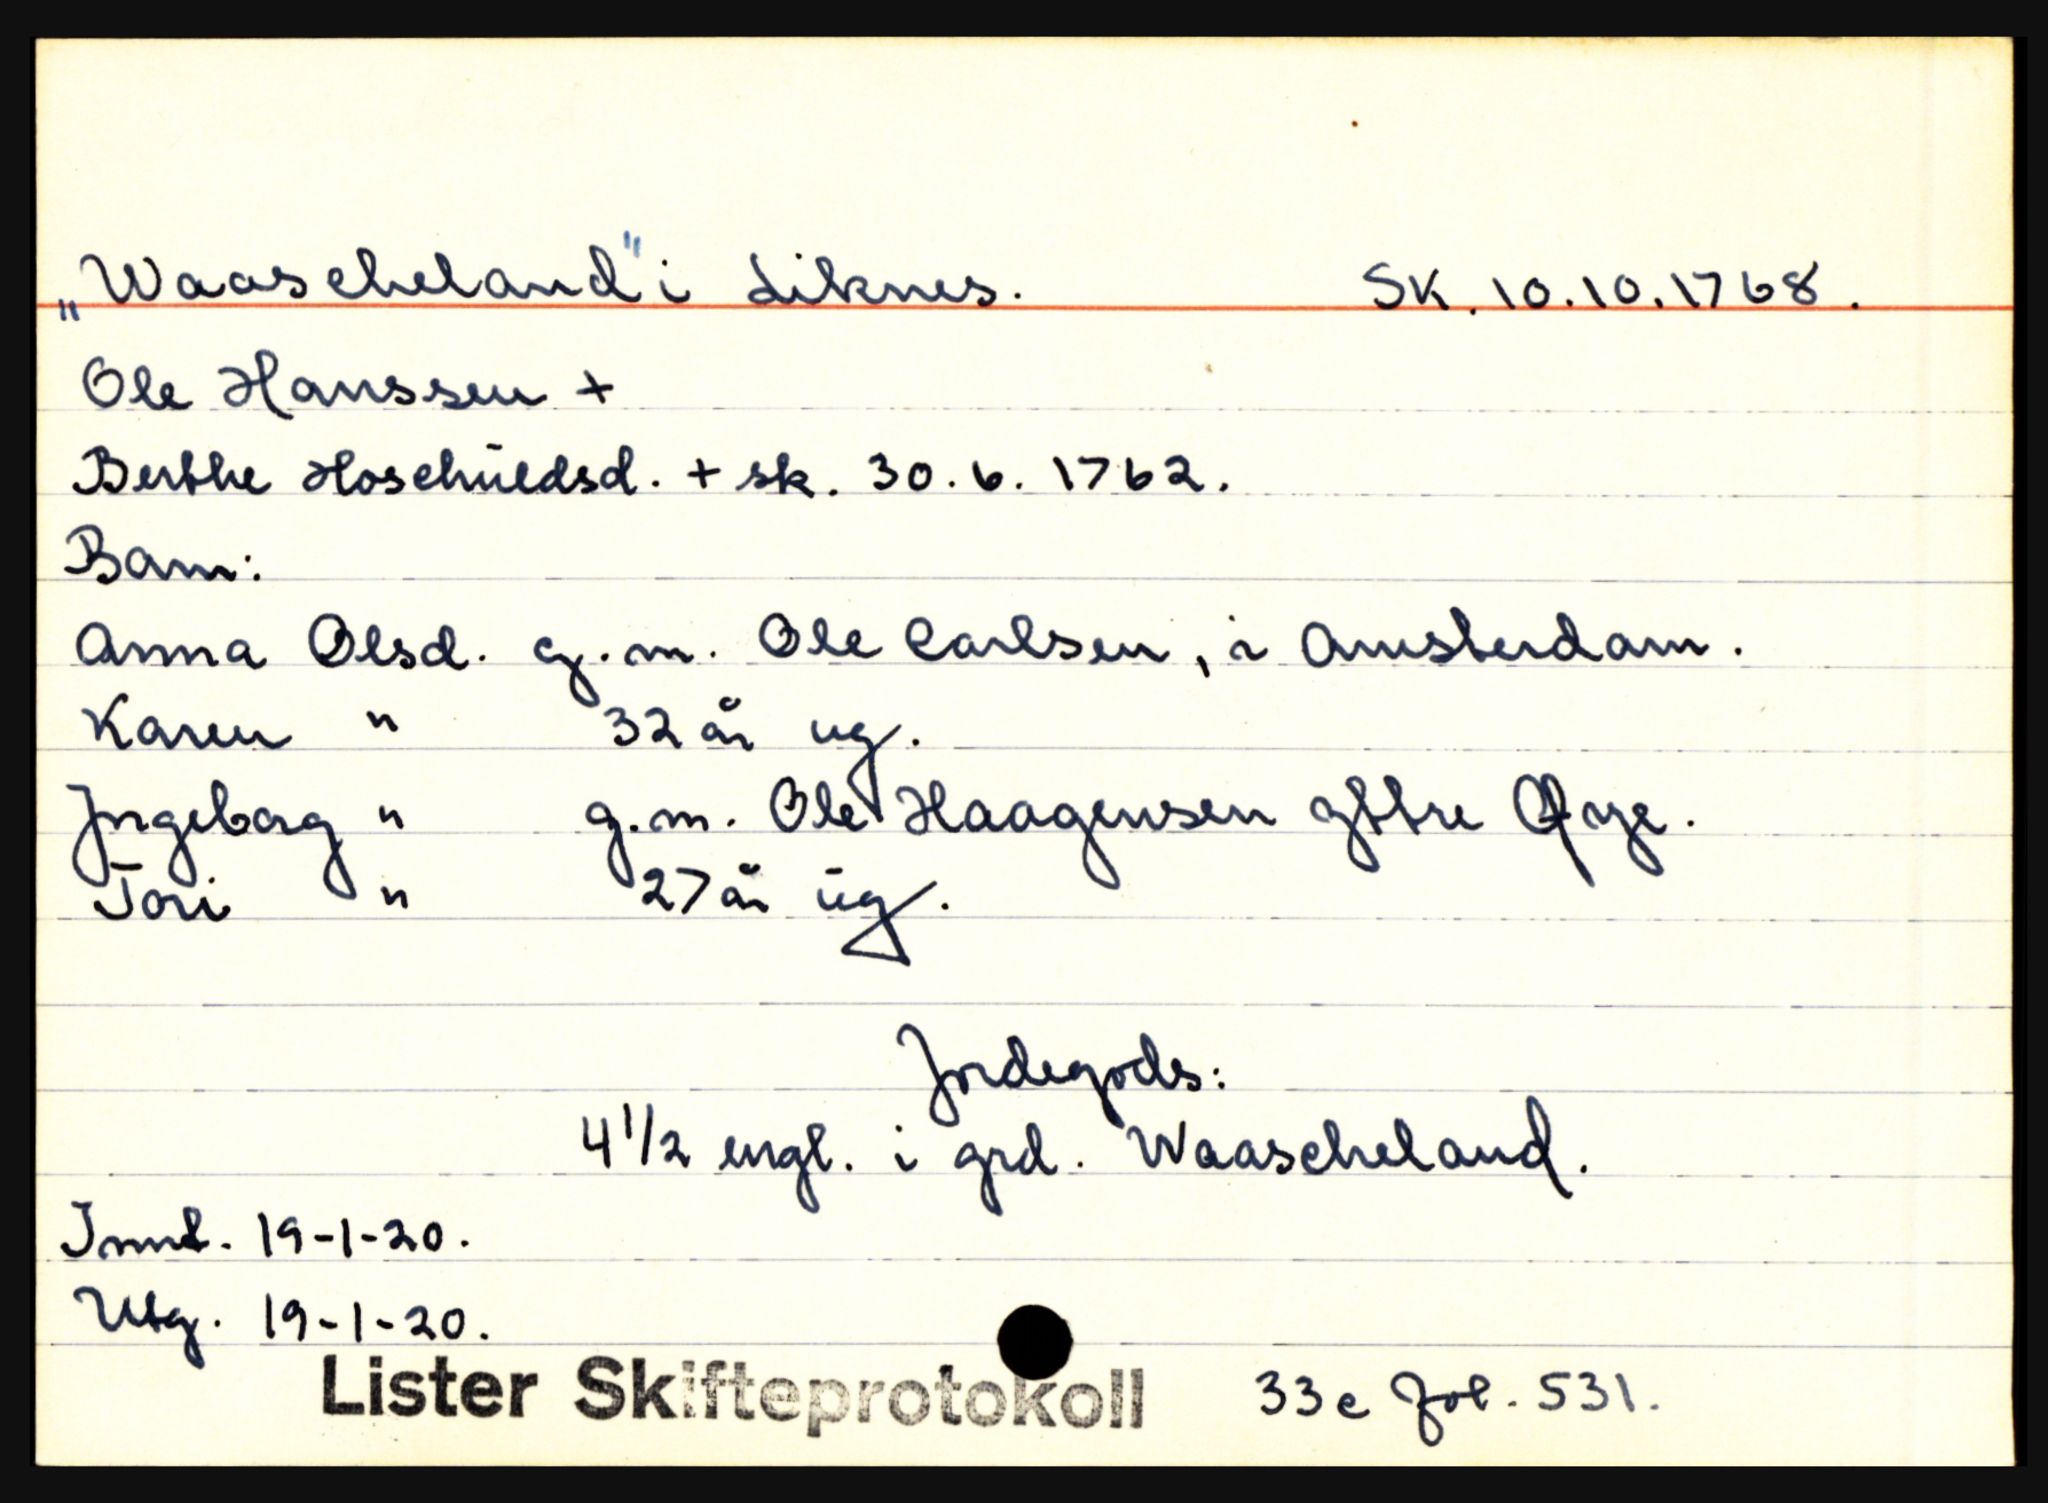 „Waascheland" i Liknes. SK. 10.10.1768.
Ole Hanssen +
Berthe Hoschüldsd. + sk. 30.6.1762.
Barn:
Anna Olsd. g.m. Ole Carlsen, i Amsterdam.
Karen " 32 år ug.
Ingeborg " g.m. Ole Haagensen yttre Øye.
Tori " 27 år üg.
Jordegods:
4 1/2 engl. i grd. Waascheland.
Innt. 19-1-20.
Utg. 19-1-20.
Lister Skifteprotokoll 33c fol. 531.